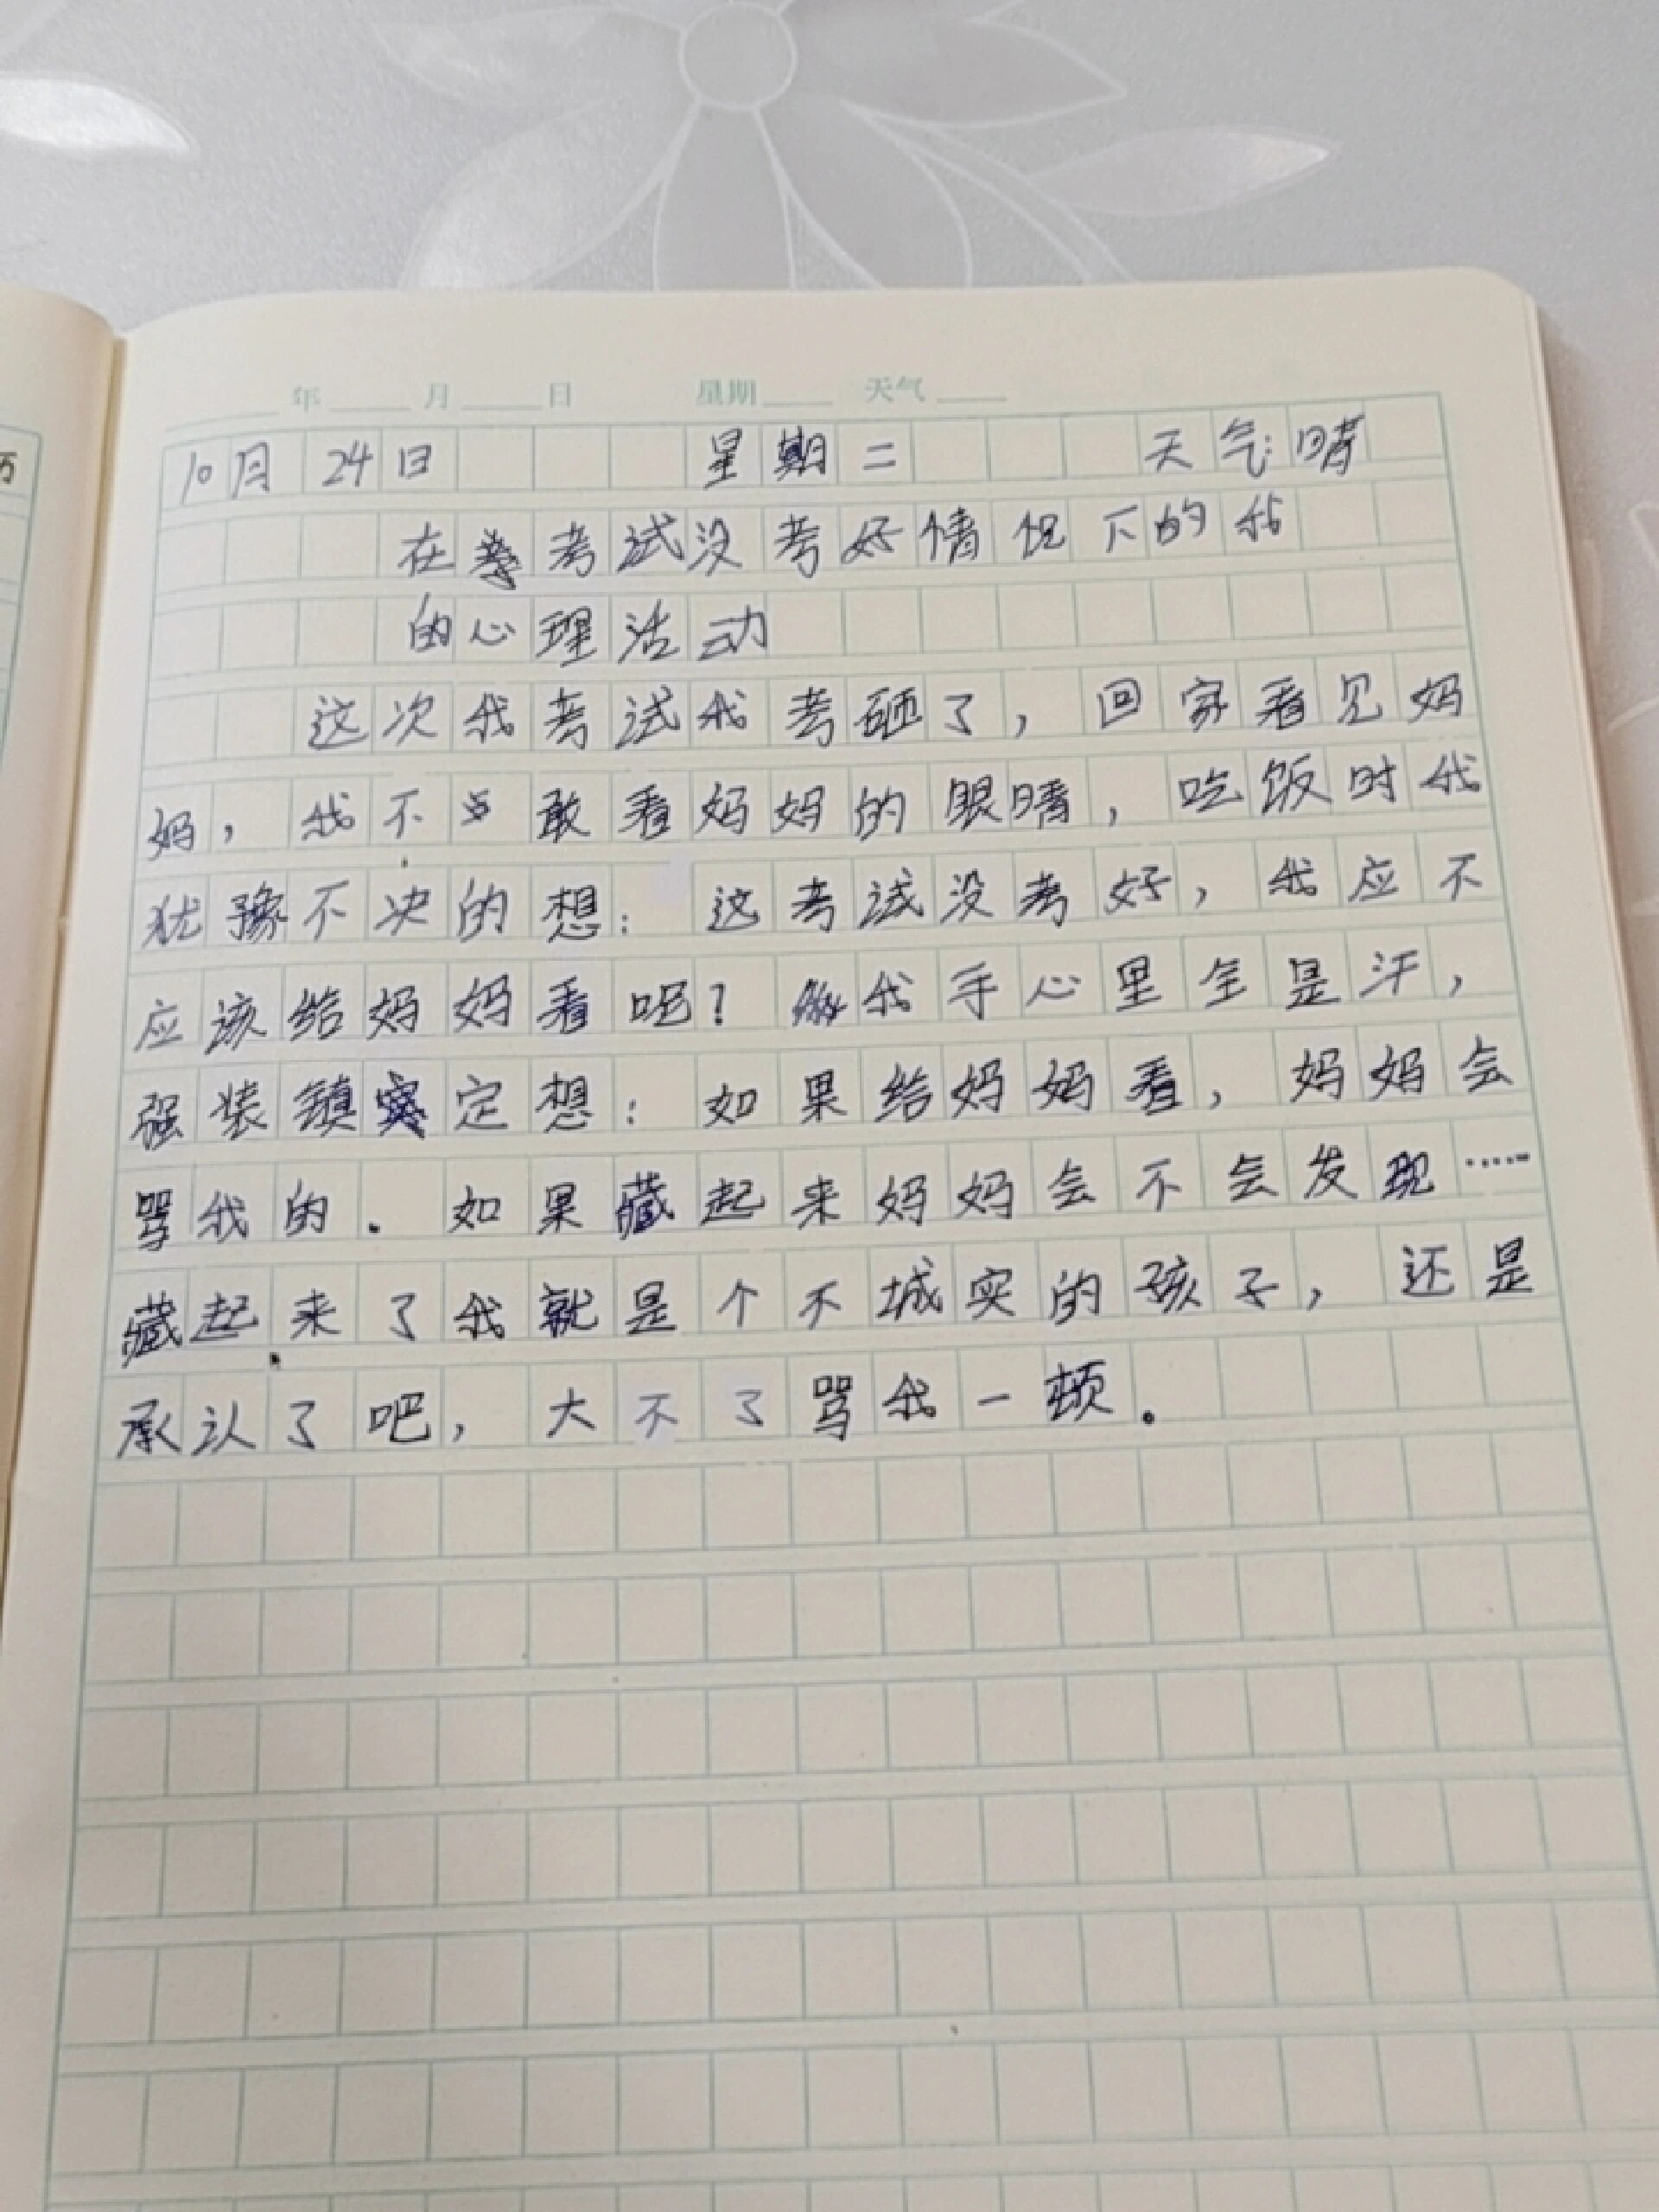 年 月 日 星期 天气
10月24日 星期二 天气:晴
在考试没考好情况下的我
的心理活动
这次我考试我考砸了，回家看见妈
妈，我不敢看妈妈的眼晴，吃饭时我
犹豫不决的想：这考试没考好，我应不
应该给妈妈看呢？我手心里全是汗，
强装镇定想：如果给妈妈看，妈妈会
骂我的。如果藏起来妈妈会不会发现……
藏起来了我就是个不城实的孩子，还是
承认了吧，大不了骂我一顿。